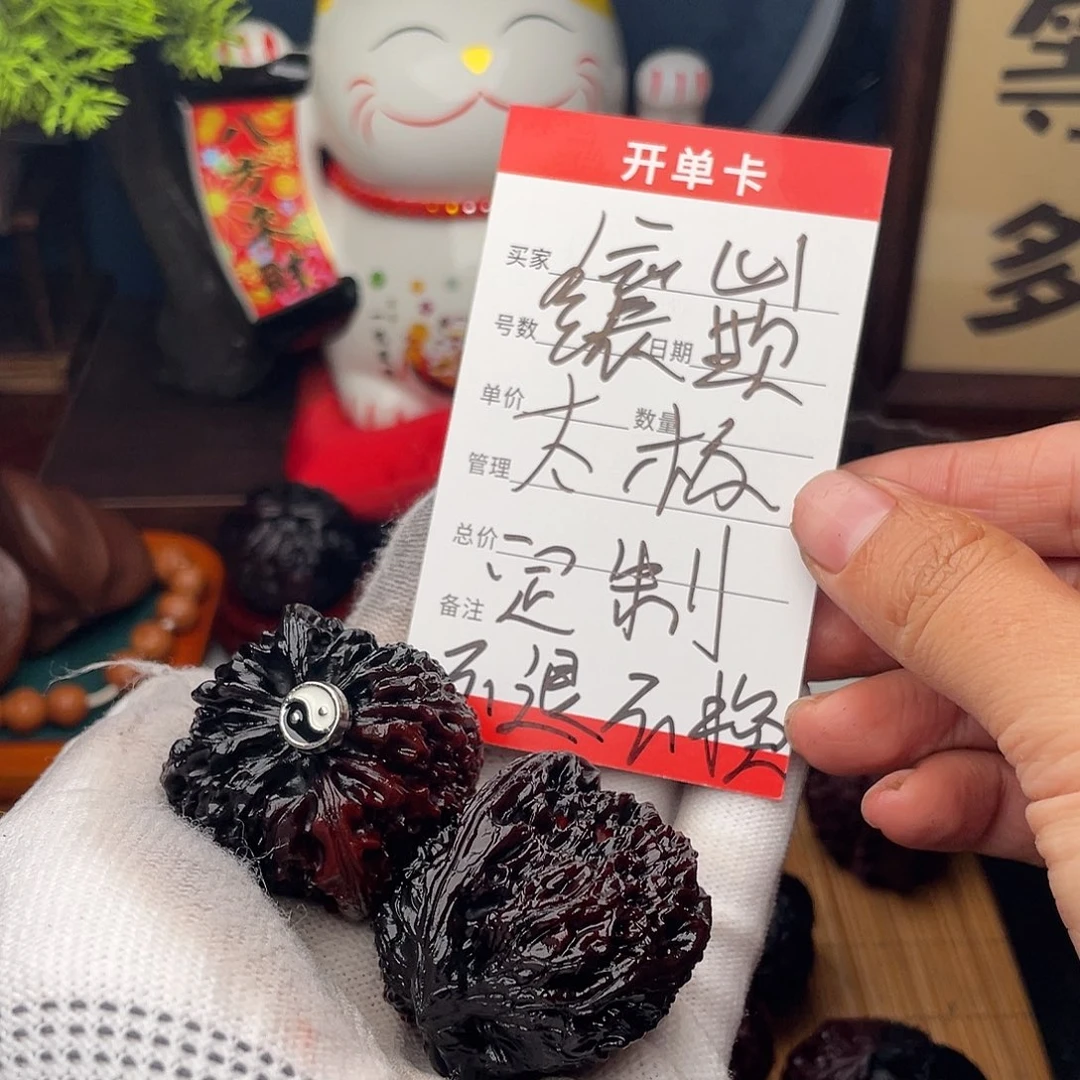 开单卡
买家
号数 日期
镶嵌
单价 数量
管理
太极
总价
备注
定制
不退不换
八方来财
多